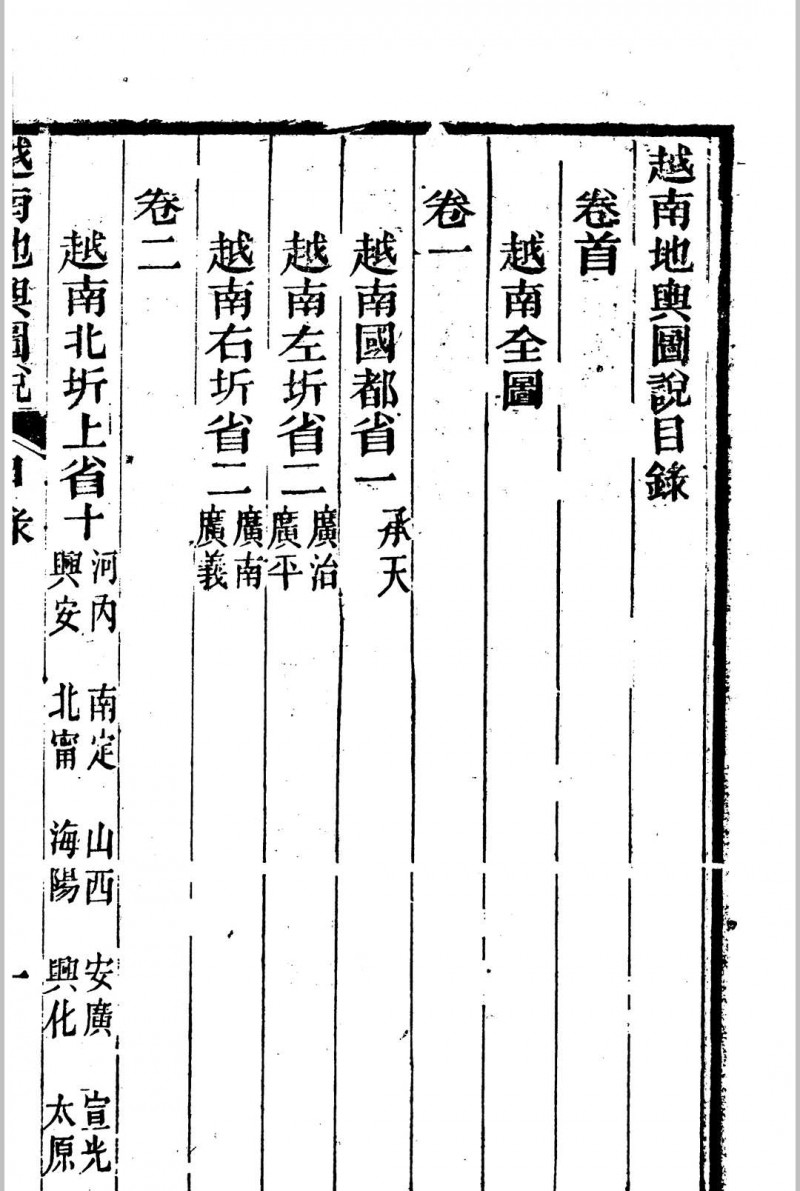 越南地輿圖說目錄
卷首
越南全圖
卷一
越南國都省一 承天
越南左圻省二 廣治 廣平
越南右圻省二 廣南 廣義
卷二
越南北圻上省十 河內 南定 山西 安廣 宣光
興安 北甯 海陽 興化 太原
越南地輿圖說 目錄 一